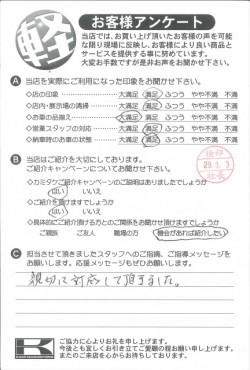 軽
お客様アンケート
当店では、お買い上げ頂いたお客様の声を可能
な限り現場に反映し、お客様により良い商品と
サービスを提供する事に努めています。
大変お手数ですが是非お声をお聞かせ下さい。
A 当店を実際にご利用になった印象をお聞かせ下さい。
◇店の印象 大満足 満足 ふつう やや不満 不満
◇店内・展示場の清掃 大満足 満足 ふつう やや不満 不満
◇お車の品揃え 大満足 満足 ふつう やや不満 不満
◇営業スタッフの対応 大満足 満足 ふつう やや不満 不満
◇納車時のお車の状態 大満足 満足 ふつう やや不満 不満
B 当店はご紹介を大切にしております。
ご紹介キャンペーンについてお聞かせ下さい。
◇カミタケご紹介キャンペーンのご説明はありましたでしょうか
はい いいえ
◇ご紹介を頂けますでしょうか
はい いいえ
◇具体的にご紹介頂ける方とのご関係をお聞かせ頂けますでしょうか
ご親族 ご友人 職場の方 機会があれば紹介したい
C 担当させて頂きましたスタッフへのご指摘、ご指導メッセージを
お願いします。応援メッセージもぜひお願いします。
親切に対応して頂きました。
K
ご協力に心よりお礼を申し上げます。
今後とも宜しくお引き立てご愛顧の程お願い申し上げます。
またのご来店を心からお待ちしております。